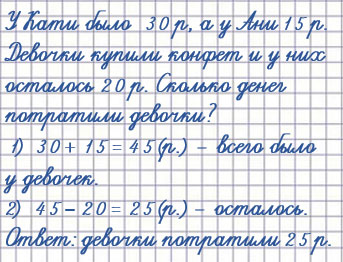 У Кати было 30 р, а у Ани 15 р.
Девочки купили конфет и у них
осталось 20 р. Сколько денег
потратили девочки?
1) 30 + 15 = 45 (р.) – всего было
у девочек.
2) 45 – 20 = 25 (р.) – осталось.
Ответ: девочки потратили 25 р.